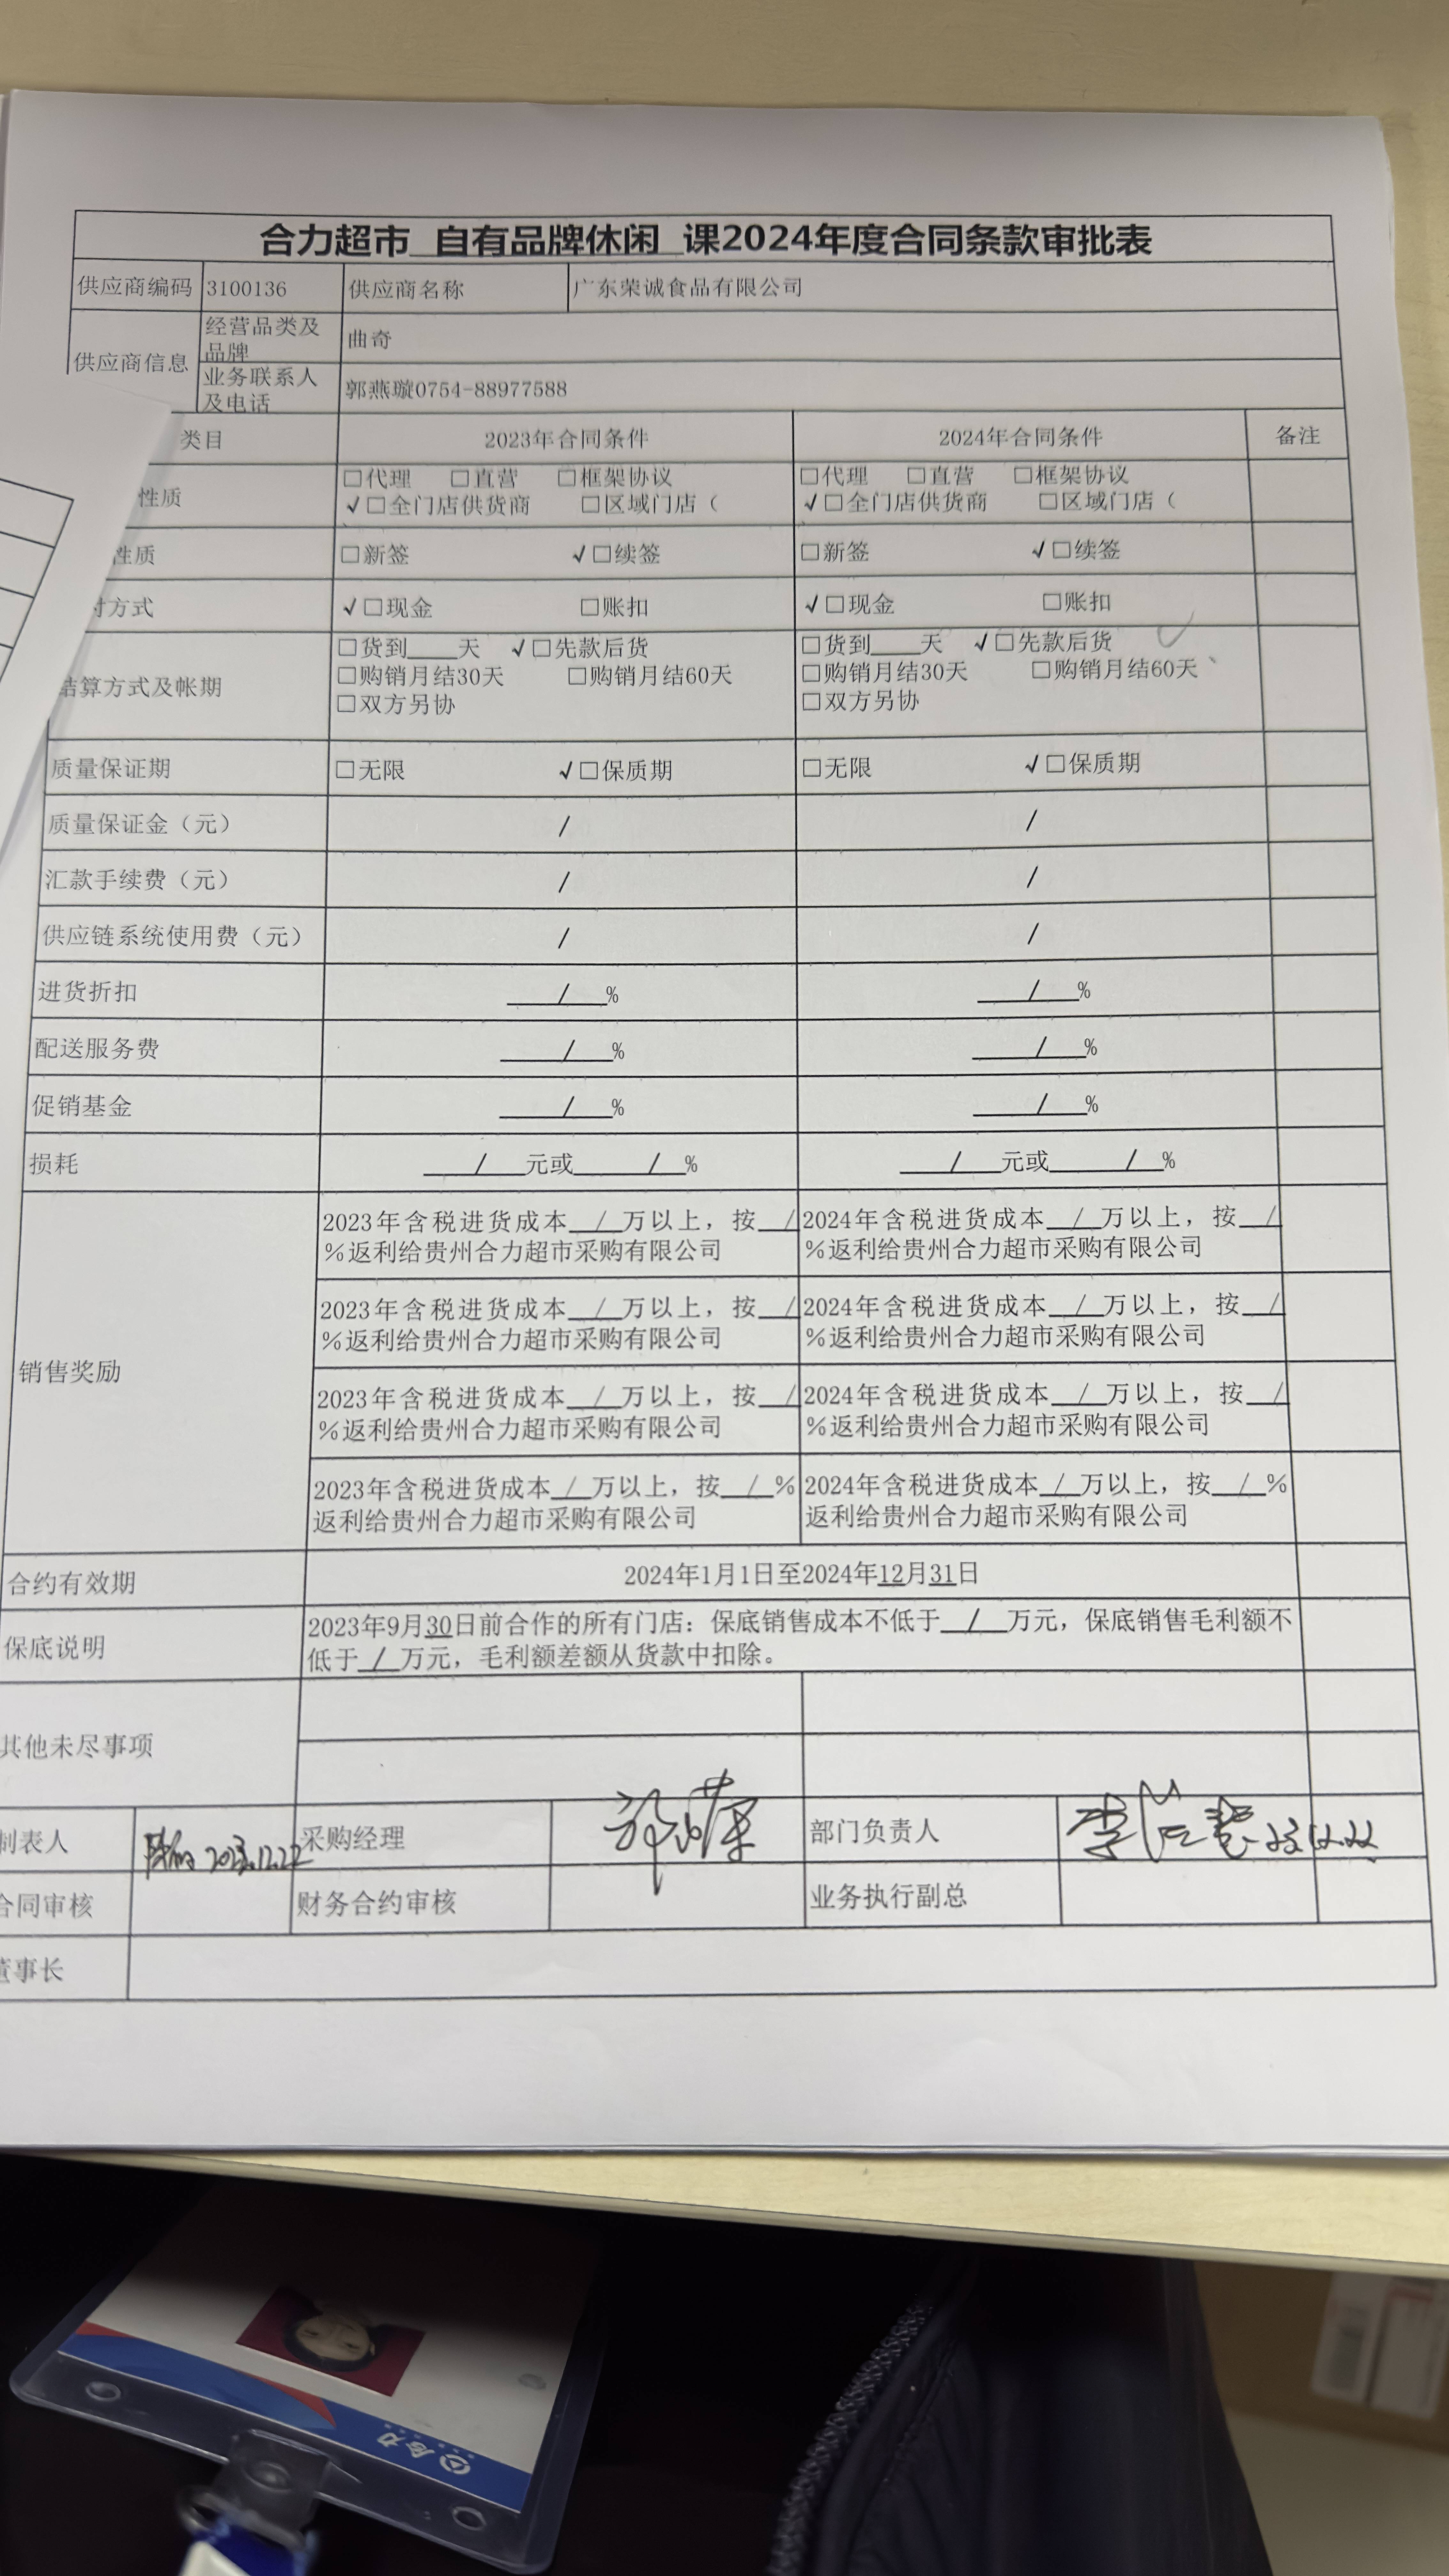 合力超市 自有品牌休闲 课2024年度合同条款审批表
供应商编码 3100136 供应商名称 广东荣诚食品有限公司
供应商信息
经营品类及
品牌
曲奇
业务联系人
及电话
郭燕璇0754-88977588
类目 2023年合同条件 2024年合同条件 备注
性质
□代理 □直营 □框架协议
√□全门店供货商 □区域门店（
□代理 □直营 □框架协议
√□全门店供货商 □区域门店（
性质 □新签 √□续签 □新签 √□续签
付方式 √□现金 □账扣 √□现金 □账扣
结算方式及帐期
□货到____天 √□先款后货
□购销月结30天 □购销月结60天
□双方另协
□货到____天 √□先款后货
□购销月结30天 □购销月结60天
□双方另协
质量保证期 □无限 √□保质期 □无限 √□保质期
质量保证金（元） / /
汇款手续费（元） / /
供应链系统使用费（元） / /
进货折扣 / % / %
配送服务费 / % / %
促销基金 / % / %
损耗 / 元或 / % / 元或 / %
销售奖励
2023年含税进货成本 / 万以上，按 /
%返利给贵州合力超市采购有限公司
2024年含税进货成本 / 万以上，按 /
%返利给贵州合力超市采购有限公司
2023年含税进货成本 / 万以上，按 /
%返利给贵州合力超市采购有限公司
2024年含税进货成本 / 万以上，按 /
%返利给贵州合力超市采购有限公司
2023年含税进货成本 / 万以上，按 /
%返利给贵州合力超市采购有限公司
2024年含税进货成本 / 万以上，按 /
%返利给贵州合力超市采购有限公司
2023年含税进货成本 / 万以上，按 / %
返利给贵州合力超市采购有限公司
2024年含税进货成本 / 万以上，按 / %
返利给贵州合力超市采购有限公司
合约有效期 2024年1月1日至2024年12月31日
保底说明
2023年9月30日前合作的所有门店：保底销售成本不低于 / 万元，保底销售毛利额不
低于 / 万元，毛利额差额从货款中扣除。
其他未尽事项
制表人 2023.12.22 采购经理 部门负责人
合同审核 财务合约审核 业务执行副总
董事长
合力